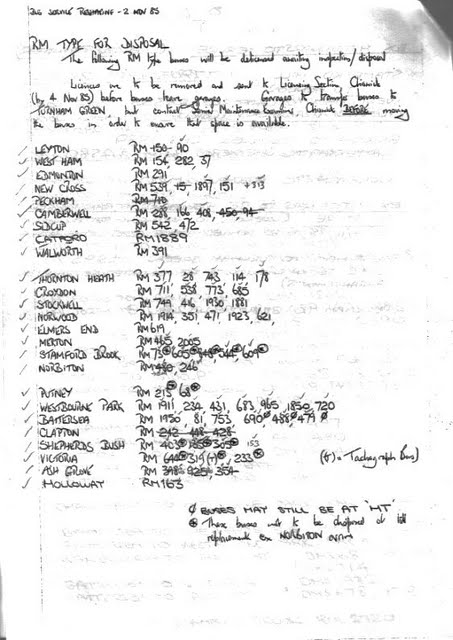 BUS SERVICE RESHAPING - 2 NOV 85
RM TYPE FOR DISPOSAL
The following RM type buses will be delicensed awaiting inspection/disposal
Licences are to be removed and sent to Licensing Section, Chiswick
(by 4 Nov 85) before buses leave garages. Garages to transfer buses to
TURNHAM GREEN, but contact Maintenance Chiswick BEFORE moving
the buses in order to ensure that space is available.
✓ LEYTON RM 150 90
✓ WEST HAM RM 154, 282, 37
✓ EDMONTON RM 291
✓ NEW CROSS RM 539, 15, 1897, 151 +313
✓ PECKHAM RM 710
✓ CAMBERWELL RM 288, 166, 408, 450, 94
✓ SIDCUP RM 542, 472
✓ CATFORD RM 1889
✓ WALWORTH RM 391
✓ THORNTON HEATH RM 377 28 743 114 178
✓ CROYDON RM 711, 538, 773, 685
✓ STOCKWELL RM 749 416 1930 1881
✓ NORWOOD RM 1914 351, 471, 1923, 621,
✓ ELMERS END RM 619,
✓ MERTON RM 465, 2005
✓ STAMFORD BROOK RM 73 605 848 544 609
✓ NORBITON RM 480, 246
✓ PUTNEY RM 213 68
✓ WESTBOURNE PARK RM 1911, 234, 431, 683, 965, 1850, 720
✓ BATTERSEA RM 1950, 81, 753, 690 488 479 Ø
✓ CLAPTON RM 242 448 428
✓ SHEPHERDS BUSH RM 463 185 305 153
✓ VICTORIA RM 640 319 (T), 233 (T) = Tachograph Bus)
✓ ASH GROVE RM 398 925, 354
✓ HOLLOWAY RM 163
Ø BUSES MAY STILL BE AT "HT"
These buses will to be disposed of till
replacement ex NORBITON arrives